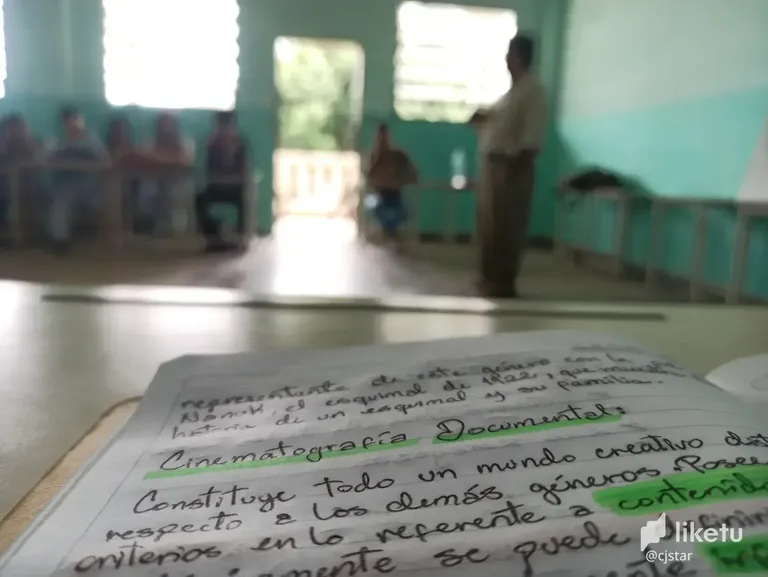 representante de este género con la
Nanuk, el esquimal de 1922, que
historia de un esquimal y su familia.
Cinematografía Documental:
Constituye todo un mundo creativo
respecto a los demás géneros. Posee
criterios en lo referente a contenido
se puede
liketu
@cjstar